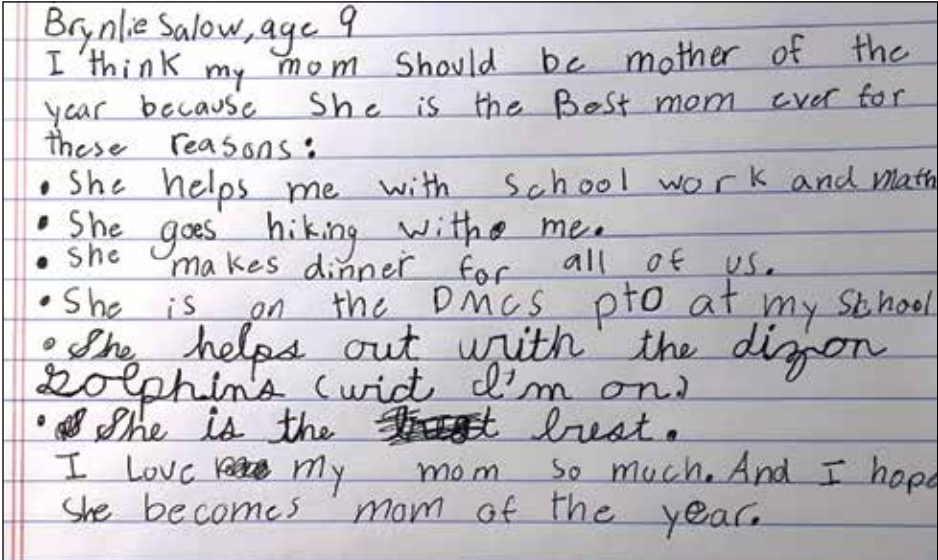 Brynlie Salow, age 9
I think my mom should be mother of the
year because she is the Best mom ever for
these reasons:
• She helps me with school work and math
• She goes hiking with me.
• She makes dinner for all of us.
• She is on the DMCS pto at my school
• She helps out with the dizon
Dolphins (wict I'm on)
• She is the best.
I Love my mom so much. And I hope
she becomes mom of the year.